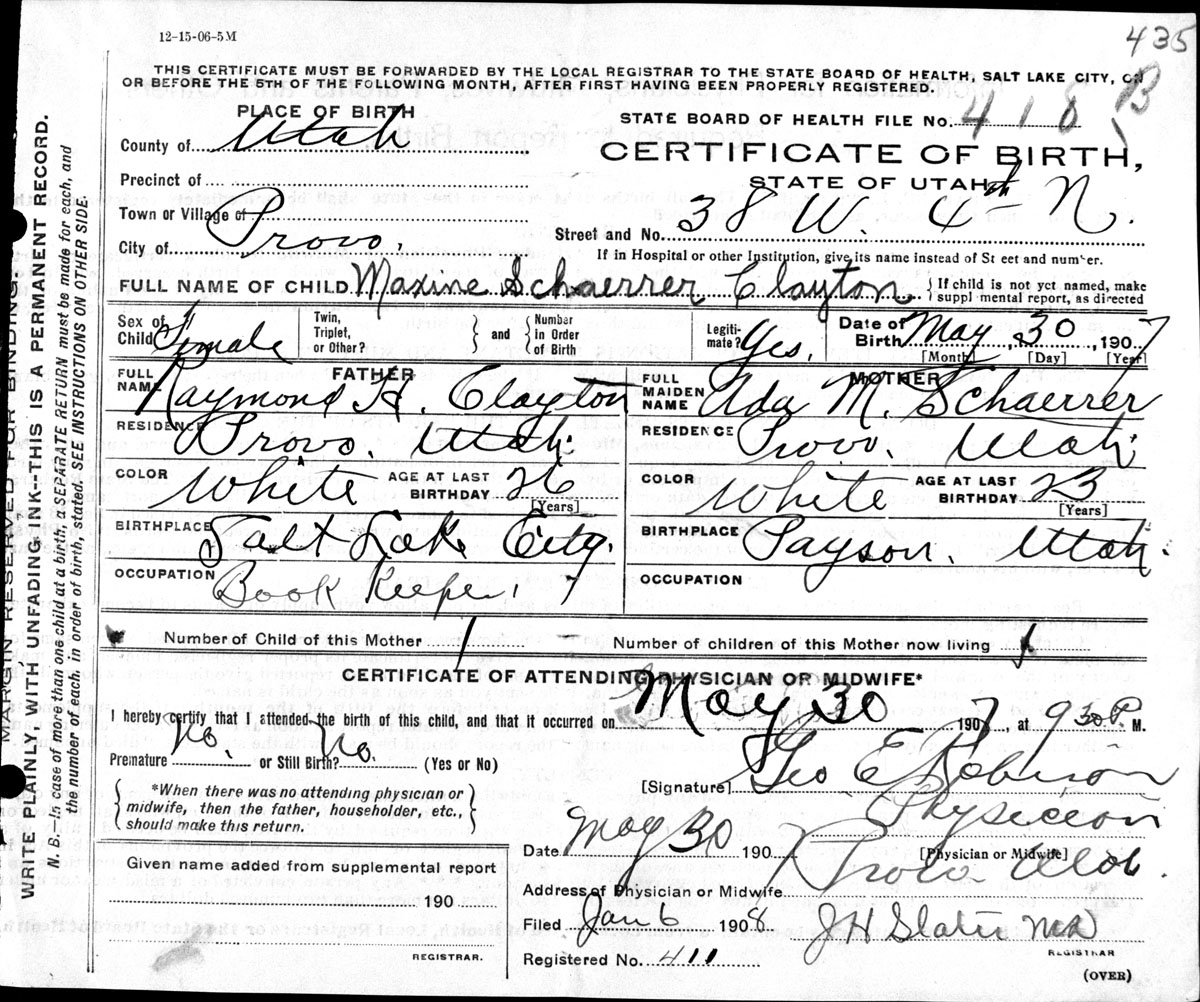 12-15-06-5M
435
B
THIS CERTIFICATE MUST BE FORWARDED BY THE LOCAL REGISTRAR TO THE STATE BOARD OF HEALTH, SALT LAKE CITY, ON
OR BEFORE THE 5TH OF THE FOLLOWING MONTH, AFTER FIRST HAVING BEEN PROPERLY REGISTERED.
PLACE OF BIRTH
STATE BOARD OF HEALTH FILE No. 418
County of Utah
CERTIFICATE OF BIRTH,
STATE OF UTAH
Precinct of
Town or Village of
City of Provo,
Street and No. 38 W. 6th N.
If in Hospital or other Institution, give its name instead of St eet and number.
FULL NAME OF CHILD Maxine Schaerrer Clayton
If child is not yet named, make
suppl mental report, as directed
Sex of Child Female
Twin, Triplet, or Other?
and
Number in Order of Birth
Legiti-mate? Yes.
Date of Birth May 30 1907
[Month] [Day] [Year]
FATHER
FULL NAME Raymond H. Clayton
RESIDENCE Provo. Utah.
COLOR White
AGE AT LAST BIRTHDAY 26
[Years]
BIRTHPLACE Salt Lake City.
OCCUPATION Book Keeper, 7
MOTHER
FULL MAIDEN NAME Ada M. Schaerrer
RESIDENCE Provo. Utah.
COLOR White
AGE AT LAST BIRTHDAY 23
[Years]
BIRTHPLACE Payson. Utah.
OCCUPATION
Number of Child of this Mother 1
Number of children of this Mother now living 1
CERTIFICATE OF ATTENDING PHYSICIAN OR MIDWIFE*
I hereby certify that I attended the birth of this child, and that it occurred on May 30 1907, at 9 30 P. M.
Premature No. or Still Birth? No. (Yes or No)
[Signature] Geo E Robinson
Physician
[Physician or Midwife]
*When there was no attending physician or
midwife, then the father, householder, etc.,
should make this return.
Date May 30 190
Address of Physician or Midwife Provo Utah.
Given name added from supplemental report
190
REGISTRAR.
Filed Jan 6 1908
J H Slater MD
REGISTRAR
Registered No. 411
(OVER)
MARGIN RESERVED FOR BINDING
WRITE PLAINLY, WITH UNFADING INK--THIS IS A PERMANENT RECORD.
N. B. In case of more than one child at a birth, a SEPARATE RETURN must be made for each, and
the number of each, in order of birth, stated. SEE INSTRUCTIONS ON OTHER SIDE.